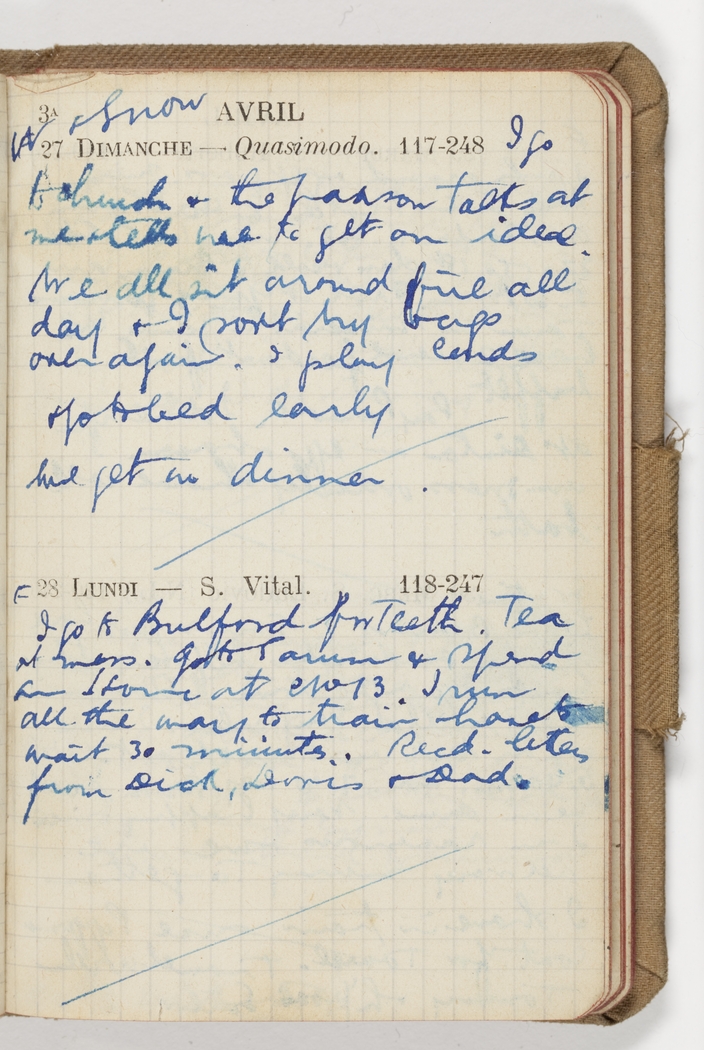 3A & Snow AVRIL
W 27 DIMANCHE — Quasimodo. 117-248 I go
to church & the parson talks at
me & tells me to get an idea.
We all sit around fire all
day & I sort my bags
over again. I play cards
& go to bed early
We get no dinner.
F 28 LUNDI — S. Vital. 118-247
I go to Bulford for Teeth. Tea
at mess. go to Sarum & spend
an Hour at I run
all the way to train & have to
wait 30 minutes. Recd. letters
from Dick, Doris & Dad.